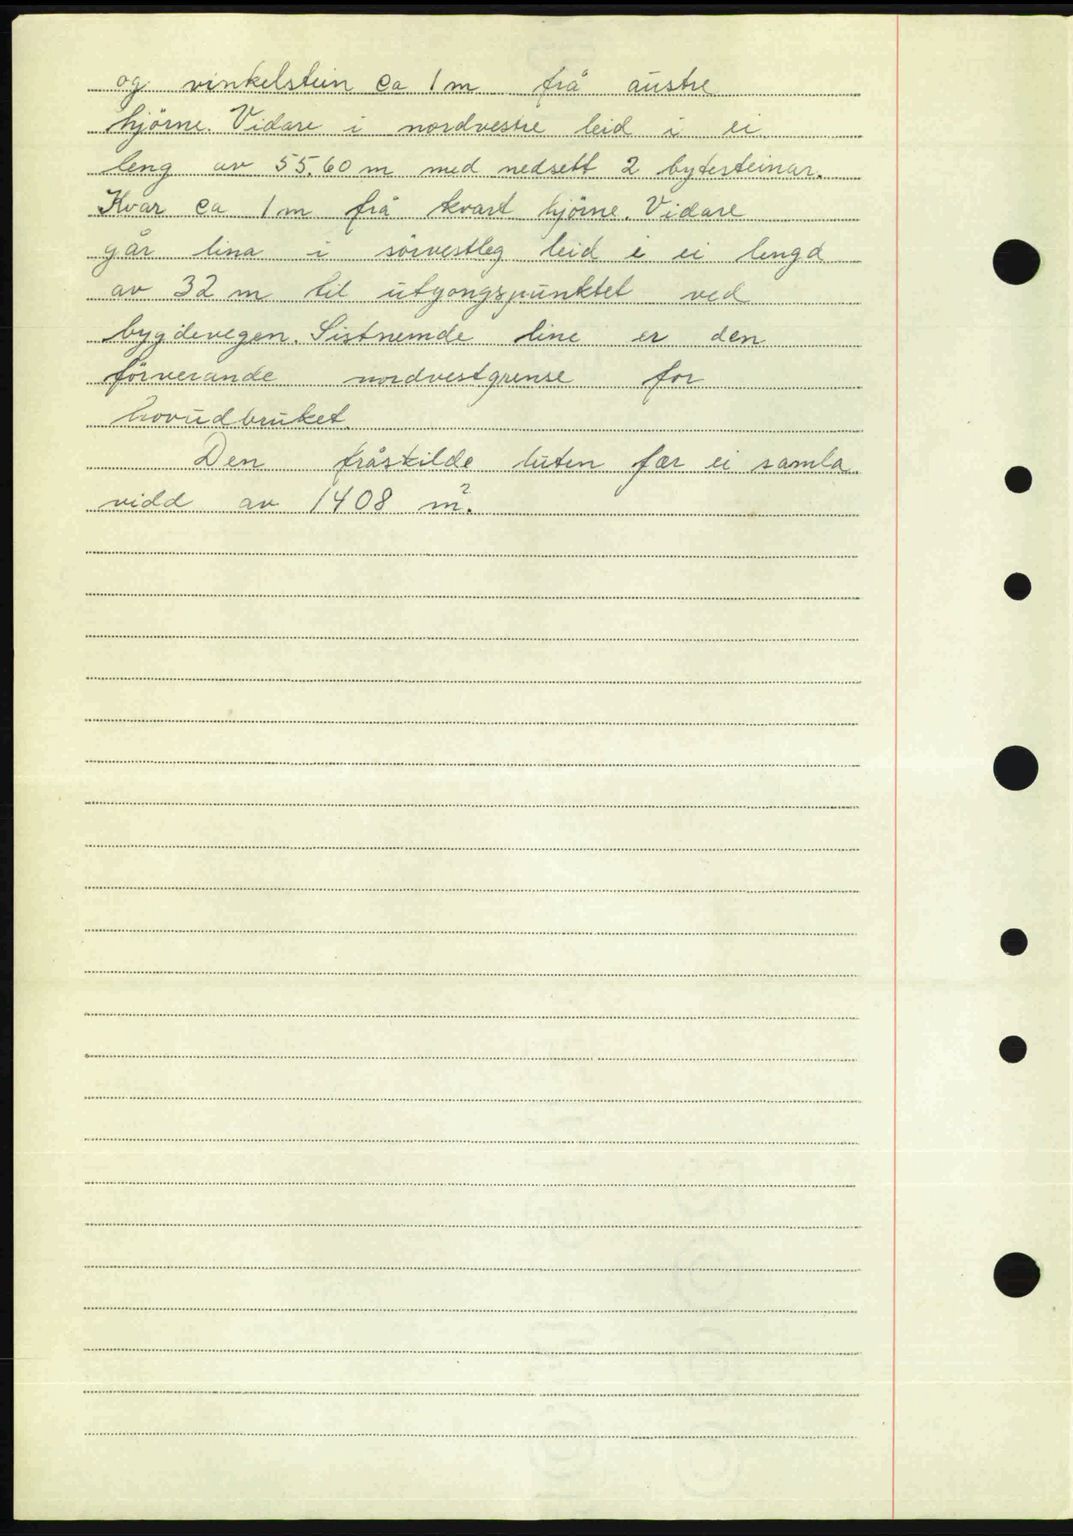 og vinkelstein ca 1 m frå austre
hjörne. Vidare i nordvestre leid i ei
leng av 55.60 m med nedsett 2 bytesteinar.
Kvar ca 1 m frå kvart hjörne. Vidare
går lina i sörvestleg leid i ei lengd
av 32 m til utgongspunktet ved
bygdevegen. Sistnemde line er den
förverande nordvestgrense for
hovudbruket.
Den fråskilde luten fær ei samla
vidd av 1408 m².